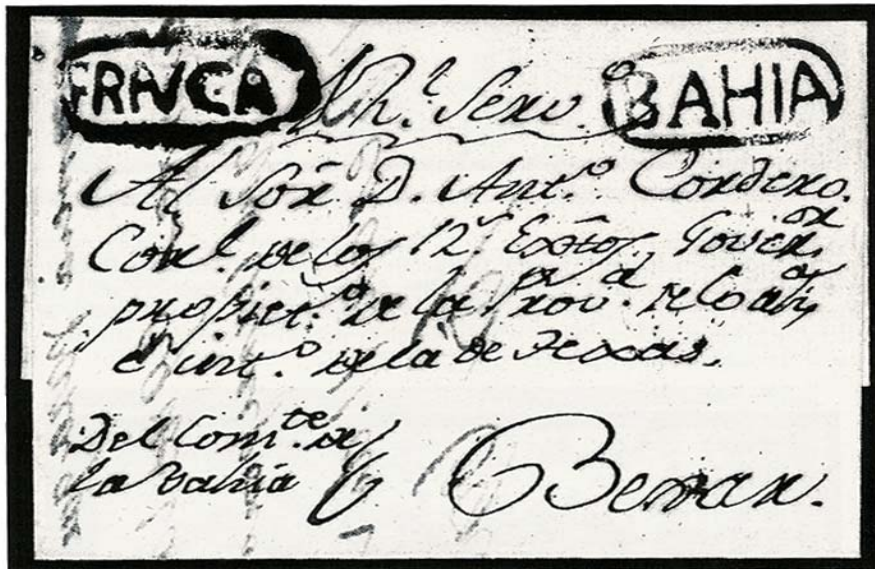 FRANCA Rl. Servo. BAHIA
Al Sor. D. Anto. Cordero.
Corl. de los Extos, Goveror.
propieto. de la Prov. de Coaa.
é into. de la de Texas.
Del Comte. de
la Bahia
Bexar.